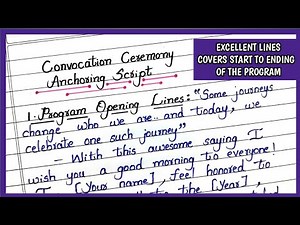 Convocation Ceremony
Anchoring Script
EXCELLENT LINES
COVERS START TO ENDING
OF THE PROGRAM
1. Program Opening Lines: "Some journeys
change who we are.. and today, we
celebrate one such journey"
- With this awesome saying I
wish you a good morning to everyone!
I [Your name], feel honored to
the [Year],